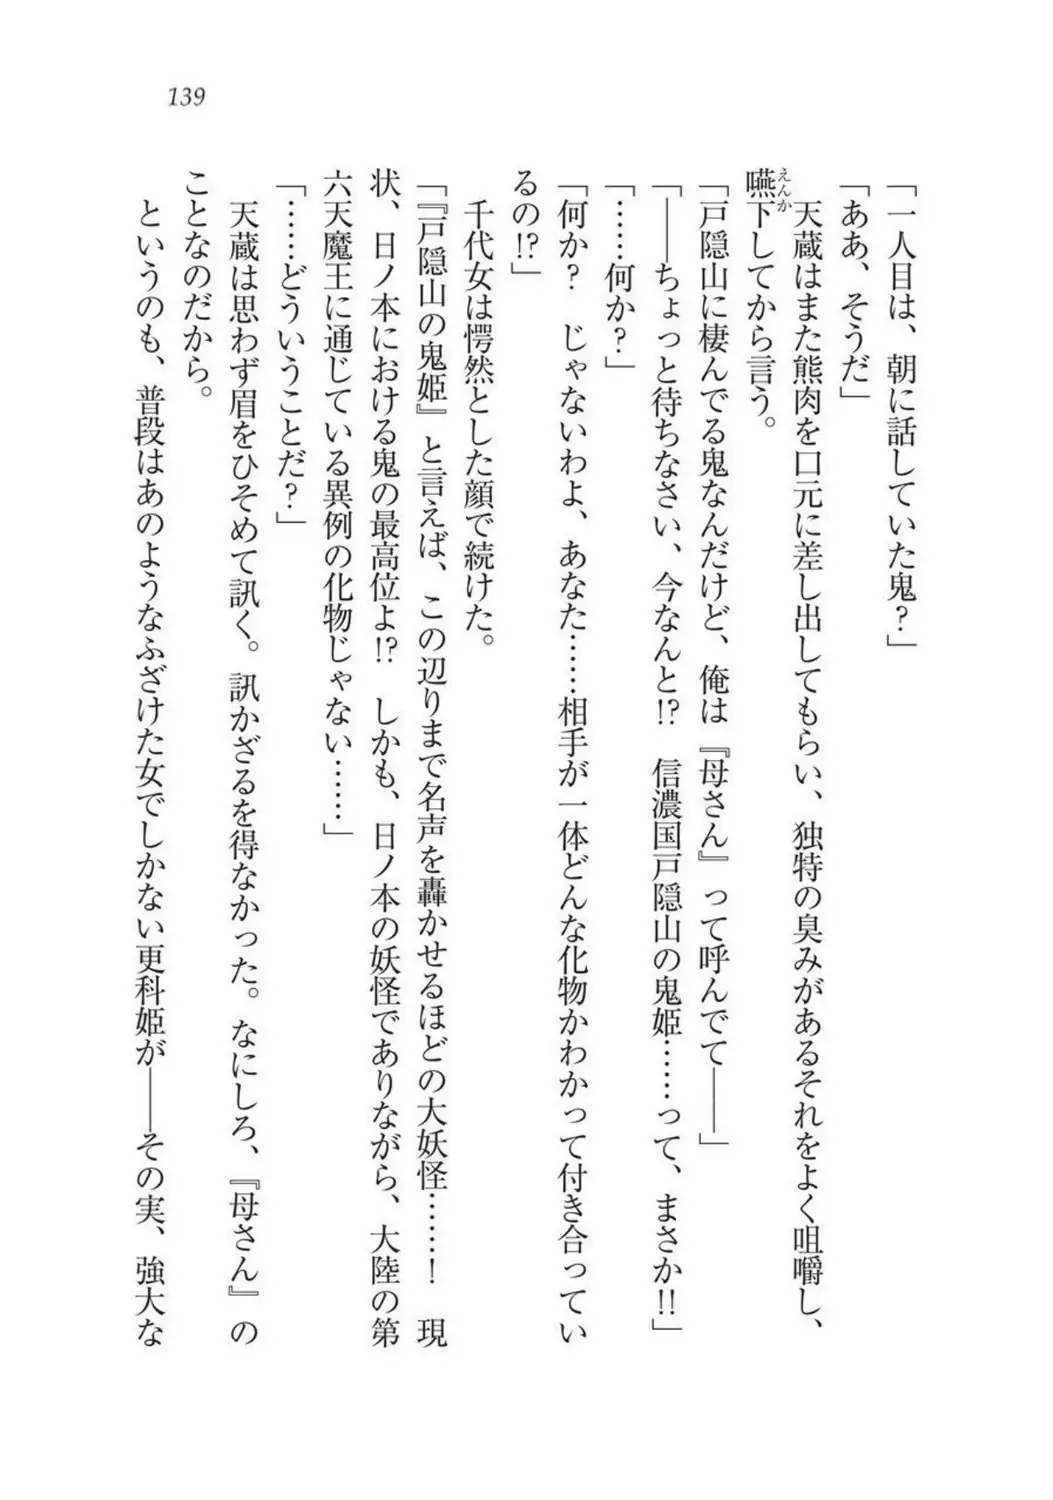 139
「一人目は、朝に話していた鬼？」
「ああ、そうだ」
　天蔵はまた熊肉を口元に差し出してもらい、独特の臭みがあるそれをよく咀嚼し、
嚥下してから言う。
えんか
「戸隠山に棲んでる鬼なんだけど、俺は『母さん』って呼んでて――」
「――ちょっと待ちなさい、今なんと!?　信濃国戸隠山の鬼姫……って、まさか!!」
「……何か？」
「何か？　じゃないわよ、あなた……相手が一体どんな化物かわかって付き合ってい
るの!?」
　千代女は愕然とした顔で続けた。
「『戸隠山の鬼姫』と言えば、この辺りまで名声を轟かせるほどの大妖怪……！　現
状、日ノ本における鬼の最高位よ!?　しかも、日ノ本の妖怪でありながら、大陸の第
六天魔王に通じている異例の化物じゃない……」
「……どういうことだ？」
　天蔵は思わず眉をひそめて訊く。訊かざるを得なかった。なにしろ、『母さん』の
ことなのだから。
　というのも、普段はあのようなふざけた女でしかない更科姫が――その実、強大な